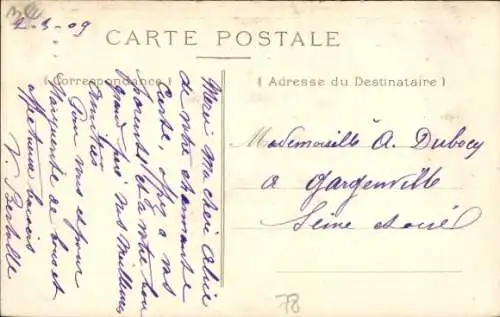 2-3-09
CARTE POSTALE
( Correspondance )
( Adresse du Destinataire )
Merci Ma chère Alice
de votre charmante
Carte,
votre bon
grand père nos Meilleures
Amitiés
Pour vous et pour
Marguerite de bons et
affectueux baisers
V. Bertelle
Mademoiselle A. Dubocq
à Gargenville
Seine et Oise
78